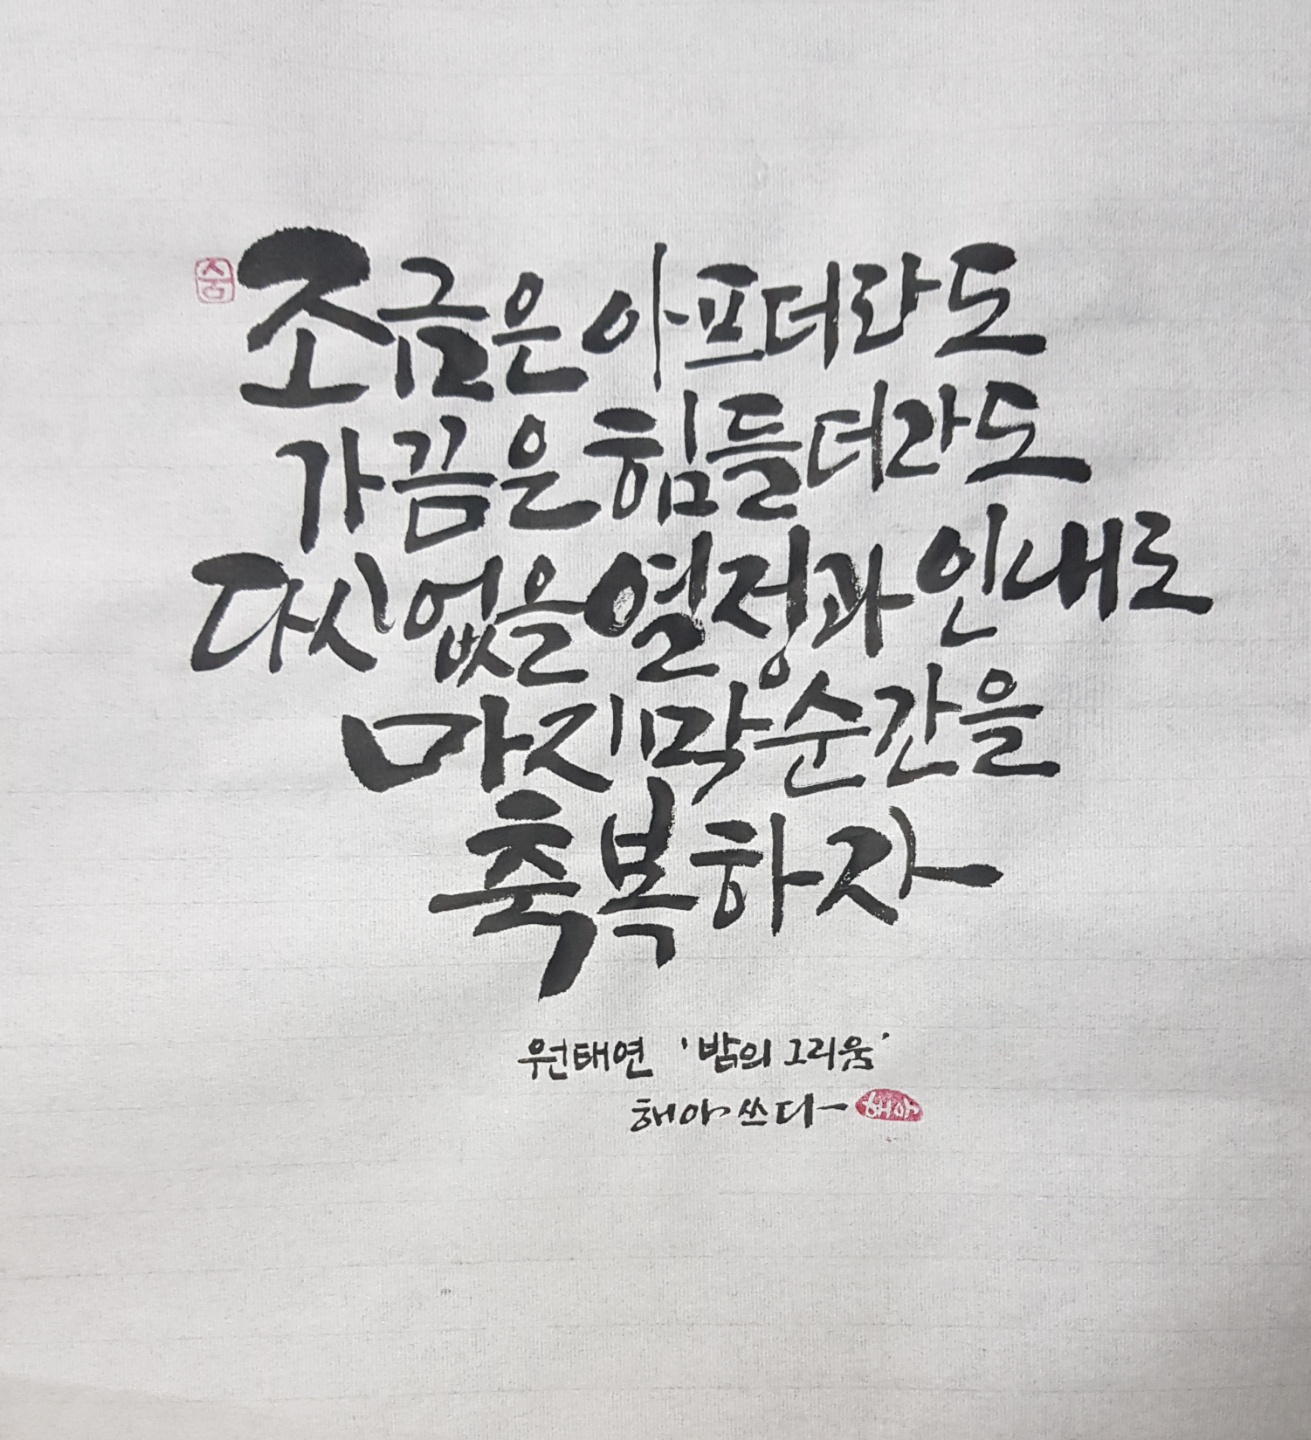 숨
조금은 아프더라도
가끔은 힘들더라도
다시 없을 열정과 인내로
마지막 순간을
축복하자
원태연 '밤의 그리움'
해아 쓰다
해아